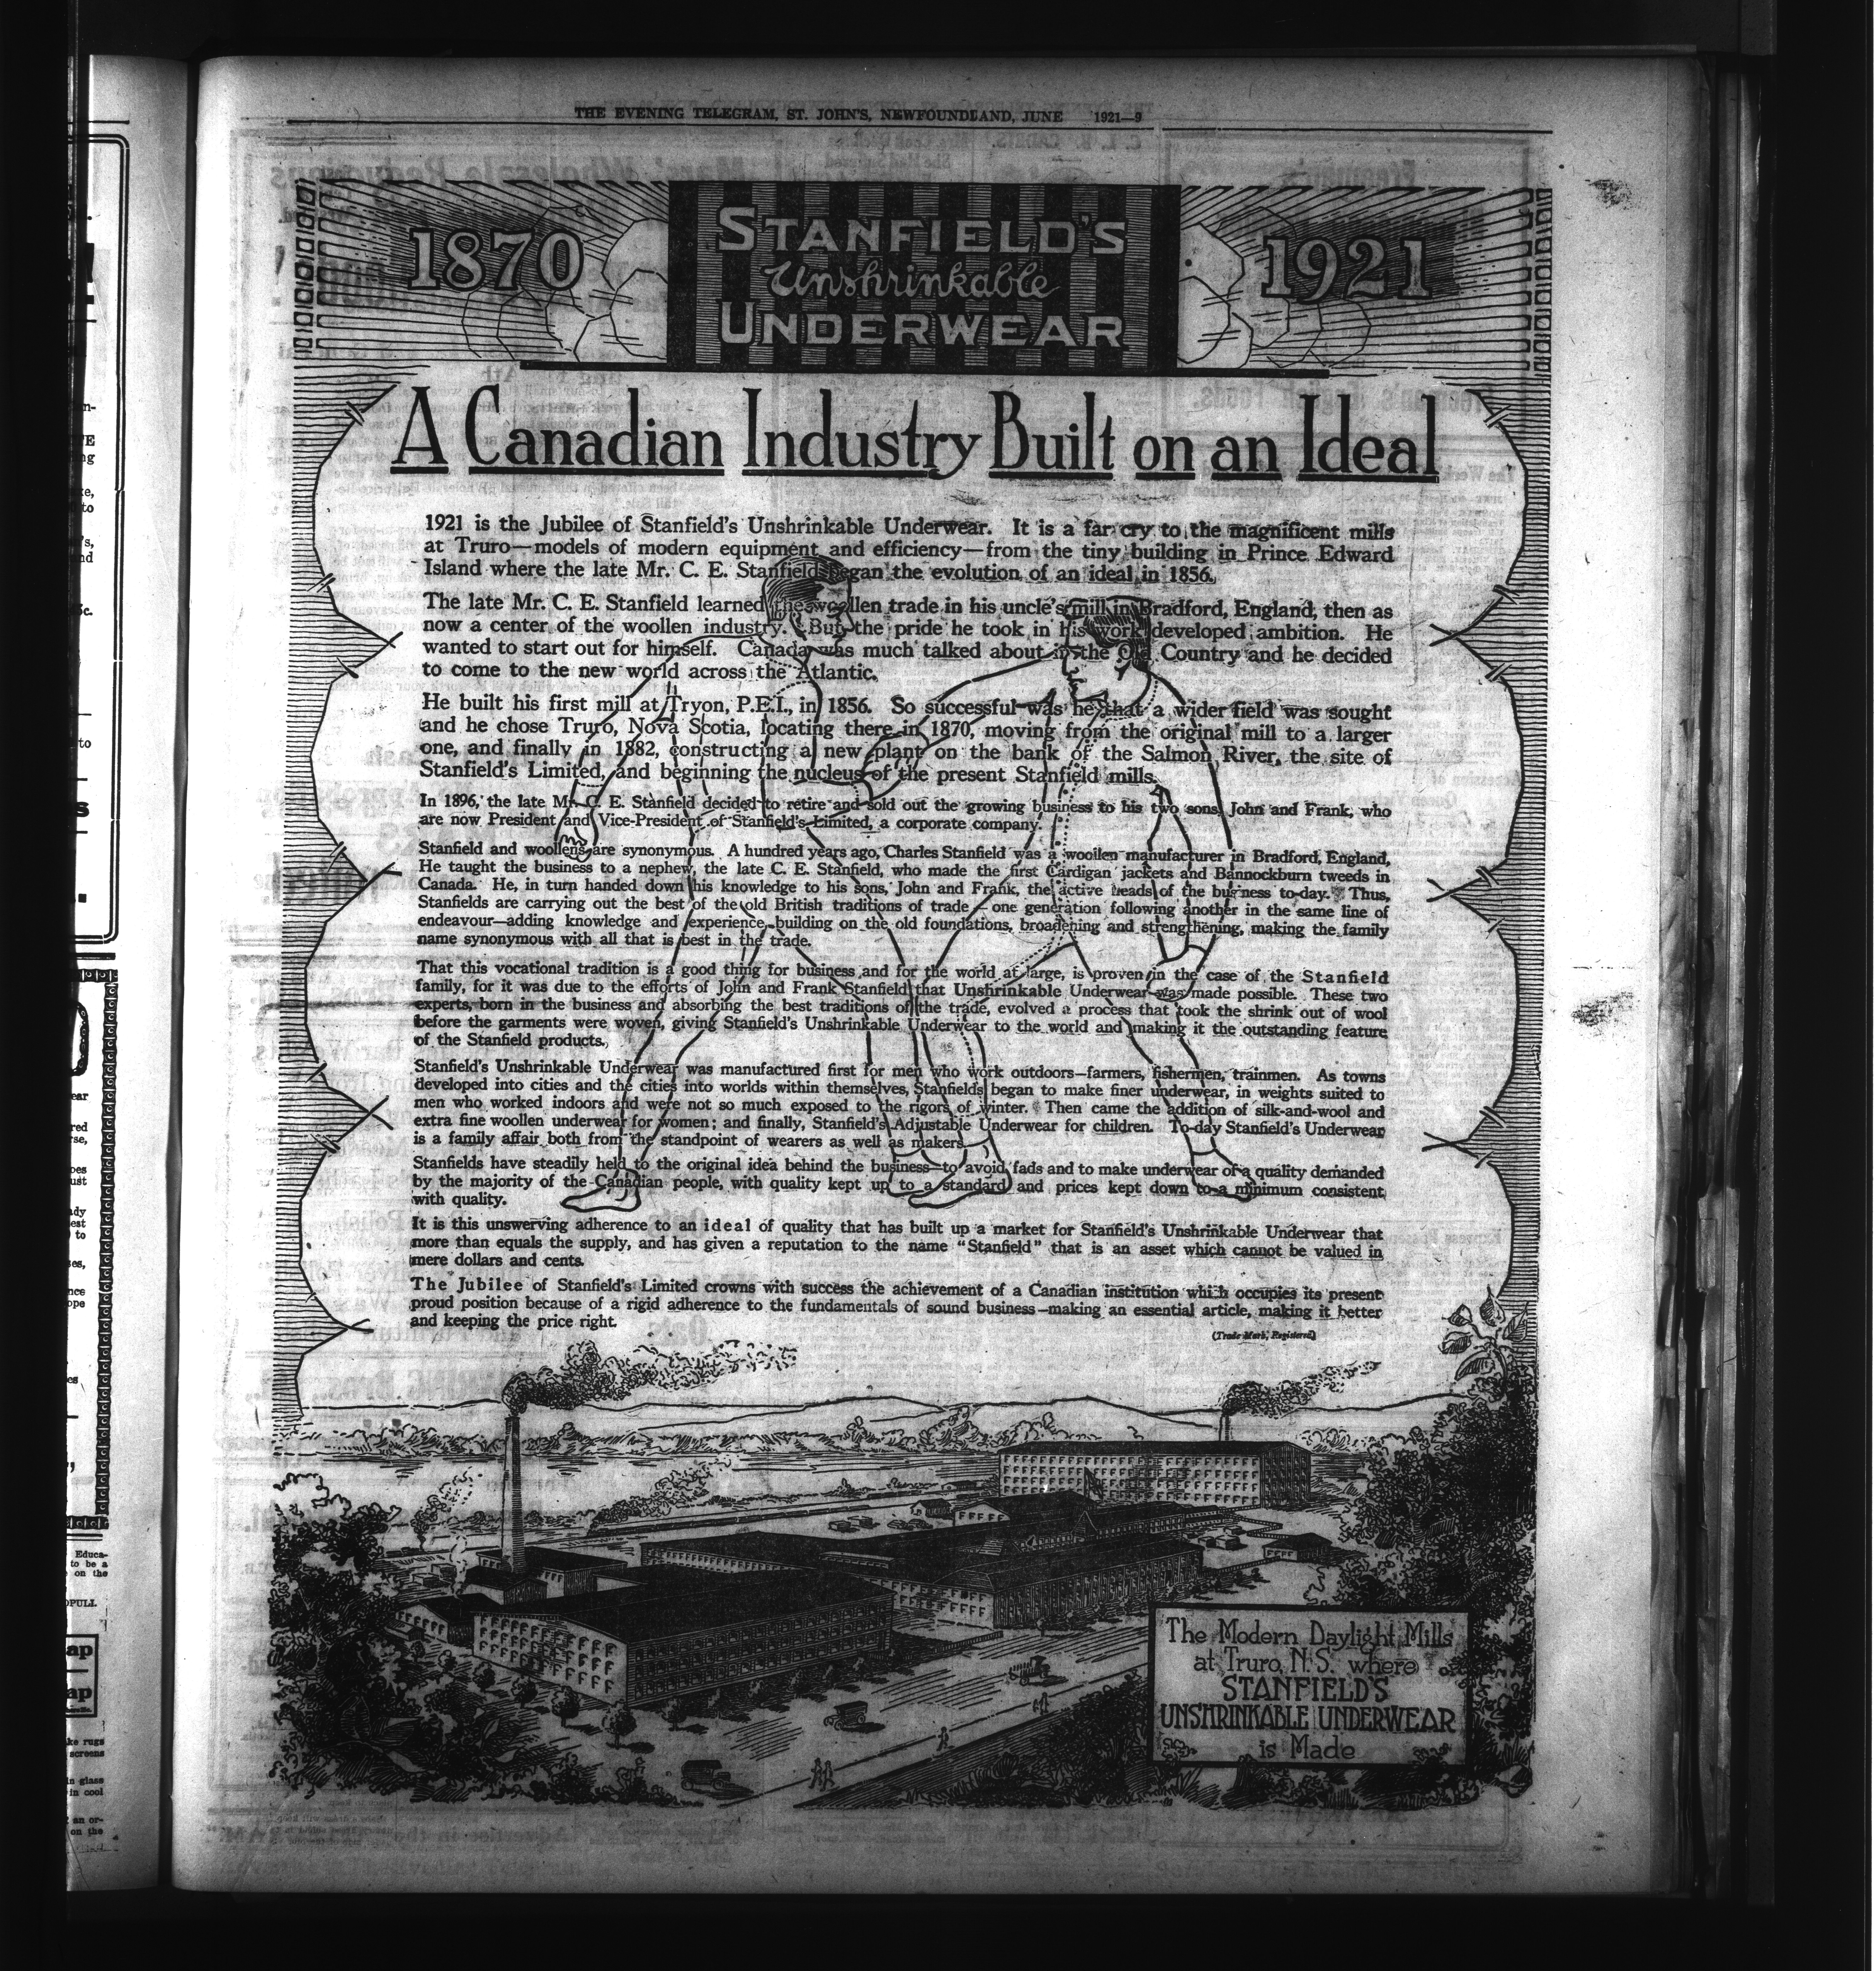 THE EVENING TELEGRAM, ST. JOHN'S, NEWFOUNDLAND, JUNE 1921—9
1870
STANFIELD'S
Unshrinkable
UNDERWEAR
1921
A Canadian Industry Built on an Ideal
1921 is the Jubilee of Stanfield's Unshrinkable Underwear. It is a far cry to the magnificent mills
at Truro—models of modern equipment and efficiency—from the tiny building in Prince Edward
Island where the late Mr. C. E. Stanfield began the evolution of an ideal in 1856.
The late Mr. C. E. Stanfield learned the woollen trade in his uncle's mill in Bradford, England, then as
now a center of the woollen industry. But the pride he took in his work developed ambition. He
wanted to start out for himself. Canada was much talked about in the Old Country and he decided
to come to the new world across the Atlantic.
He built his first mill at Tryon, P.E.I., in 1856. So successful was he that a wider field was sought
and he chose Truro, Nova Scotia, locating there in 1870, moving from the original mill to a larger
one, and finally in 1882, constructing a new plant on the bank of the Salmon River, the site of
Stanfield's Limited, and beginning the nucleus of the present Stanfield mills.
In 1896, the late Mr. C. E. Stanfield decided to retire and sold out the growing business to his two sons, John and Frank, who
are now President and Vice-President of Stanfield's Limited, a corporate company.
Stanfield and woollens are synonymous. A hundred years ago, Charles Stanfield was a woollen manufacturer in Bradford, England,
He taught the business to a nephew, the late C. E. Stanfield, who made the first Cardigan jackets and Bannockburn tweeds in
Canada. He, in turn handed down his knowledge to his sons, John and Frank, the active heads of the business to-day. Thus,
Stanfields are carrying out the best of the old British traditions of trade—one generation following another in the same line of
endeavour—adding knowledge and experience, building on the old foundations, broadening and strengthening, making the family
name synonymous with all that is best in the trade.
That this vocational tradition is a good thing for business and for the world at large, is proven in the case of the Stanfield
family, for it was due to the efforts of John and Frank Stanfield that Unshrinkable Underwear was made possible. These two
experts, born in the business and absorbing the best traditions of the trade, evolved a process that took the shrink out of wool
before the garments were woven, giving Stanfield's Unshrinkable Underwear to the world and making it the outstanding feature
of the Stanfield products.
Stanfield's Unshrinkable Underwear was manufactured first for men who work outdoors—farmers, fishermen, trainmen. As towns
developed into cities and the cities into worlds within themselves, Stanfields began to make finer underwear, in weights suited to
men who worked indoors and were not so much exposed to the rigors of winter. Then came the addition of silk-and-wool and
extra fine woollen underwear for women; and finally, Stanfield's Adjustable Underwear for children. To-day Stanfield's Underwear
is a family affair both from the standpoint of wearers as well as makers.
Stanfields have steadily held to the original idea behind the business—to avoid fads and to make underwear of a quality demanded
by the majority of the Canadian people, with quality kept up to a standard and prices kept down to a minimum consistent
with quality.
It is this unswerving adherence to an ideal of quality that has built up a market for Stanfield's Unshrinkable Underwear that
more than equals the supply, and has given a reputation to the name "Stanfield" that is an asset which cannot be valued in
mere dollars and cents.
The Jubilee of Stanfield's Limited crowns with success the achievement of a Canadian institution which occupies its present
proud position because of a rigid adherence to the fundamentals of sound business—making an essential article, making it better
and keeping the price right.
(Trade Mark, Registered)
The Modern Daylight Mills
at Truro, N.S. where
STANFIELD'S
UNSHRINKABLE UNDERWEAR
is Made